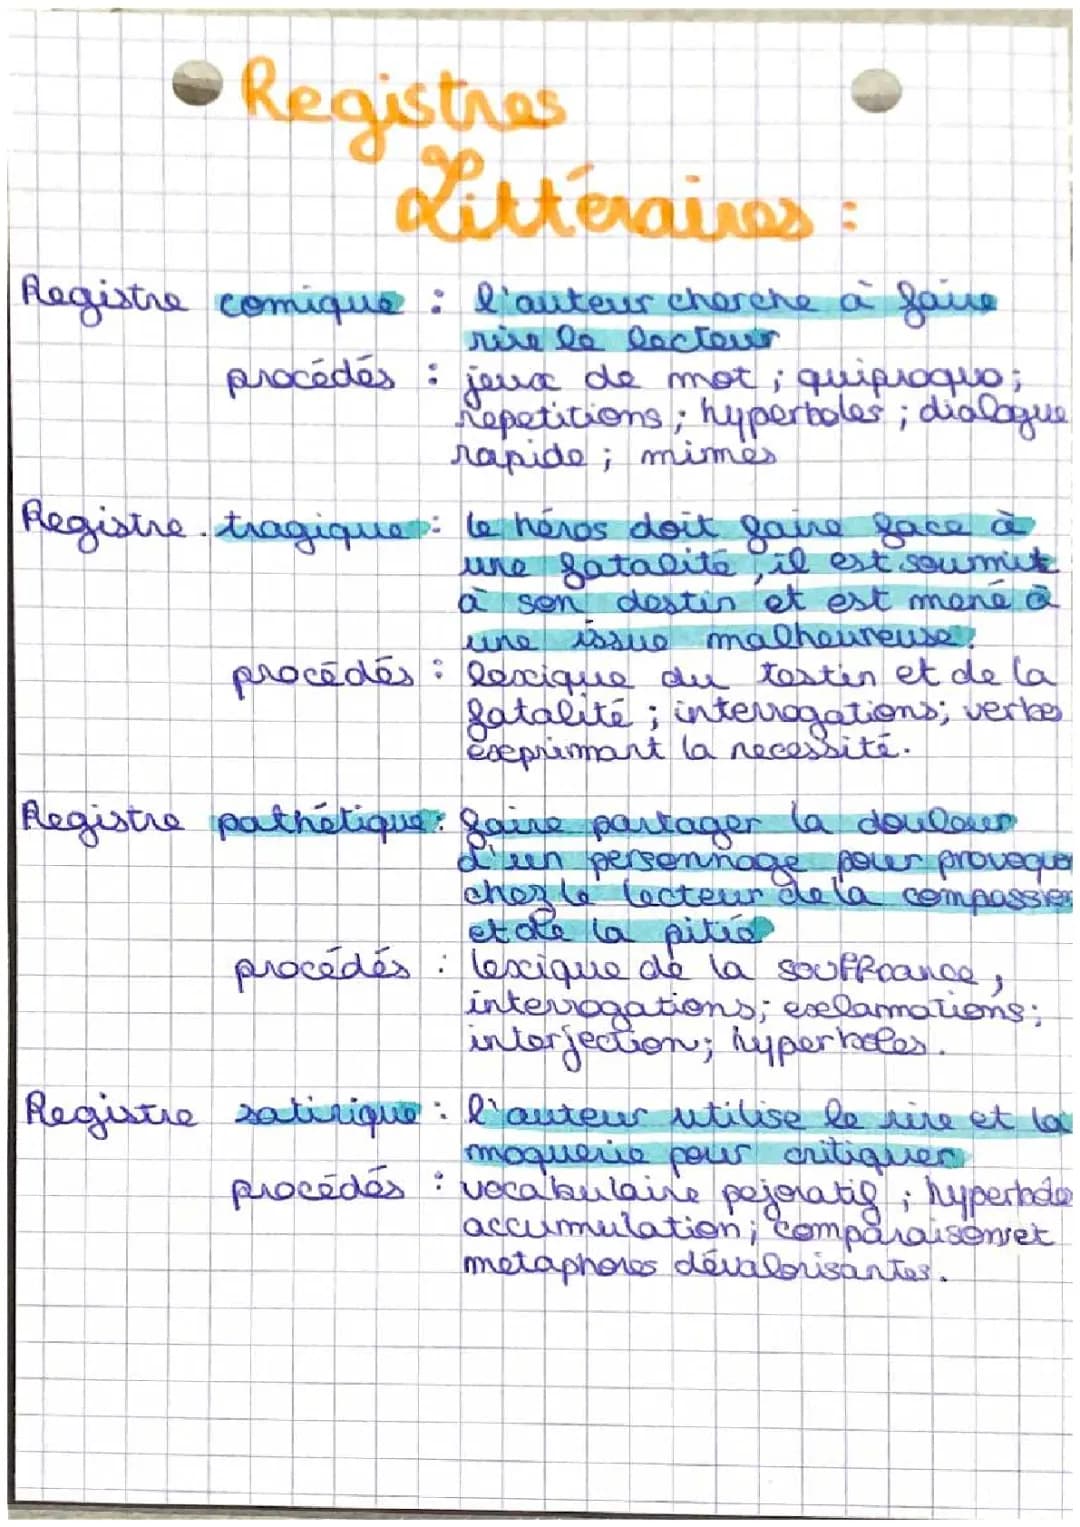 Registres
Littéraires :
Registre comique : l'auteur cherche à faire
rire le lecteur
procédés : jeux de mot ; quiproquo ;
repetitions ; hyperboles ; dialogue
rapide ; mimes
Registre tragique : le héros doit faire face à
une fatalité, il est soumit
à son destin et est mené à
une issue malheureuse.
procédés : lexique du testin et de la
fatalité ; interrogations; verbes
exprimant la necessité.
Registre pathétique : faire partager la douleur
d'un personnage pour provoquer
chez le lecteur de la compassion
et de la pitié
procédés : lexique de la souffrance,
interrogations; exclamations;
interjection; hyperboles.
Registre satirique : l'auteur utilise le rire et la
moquerie pour critiquer
procédés : vocabulaire pejoratif ; hyperbole
accumulation; comparaison et
metaphores dévalorisantes.